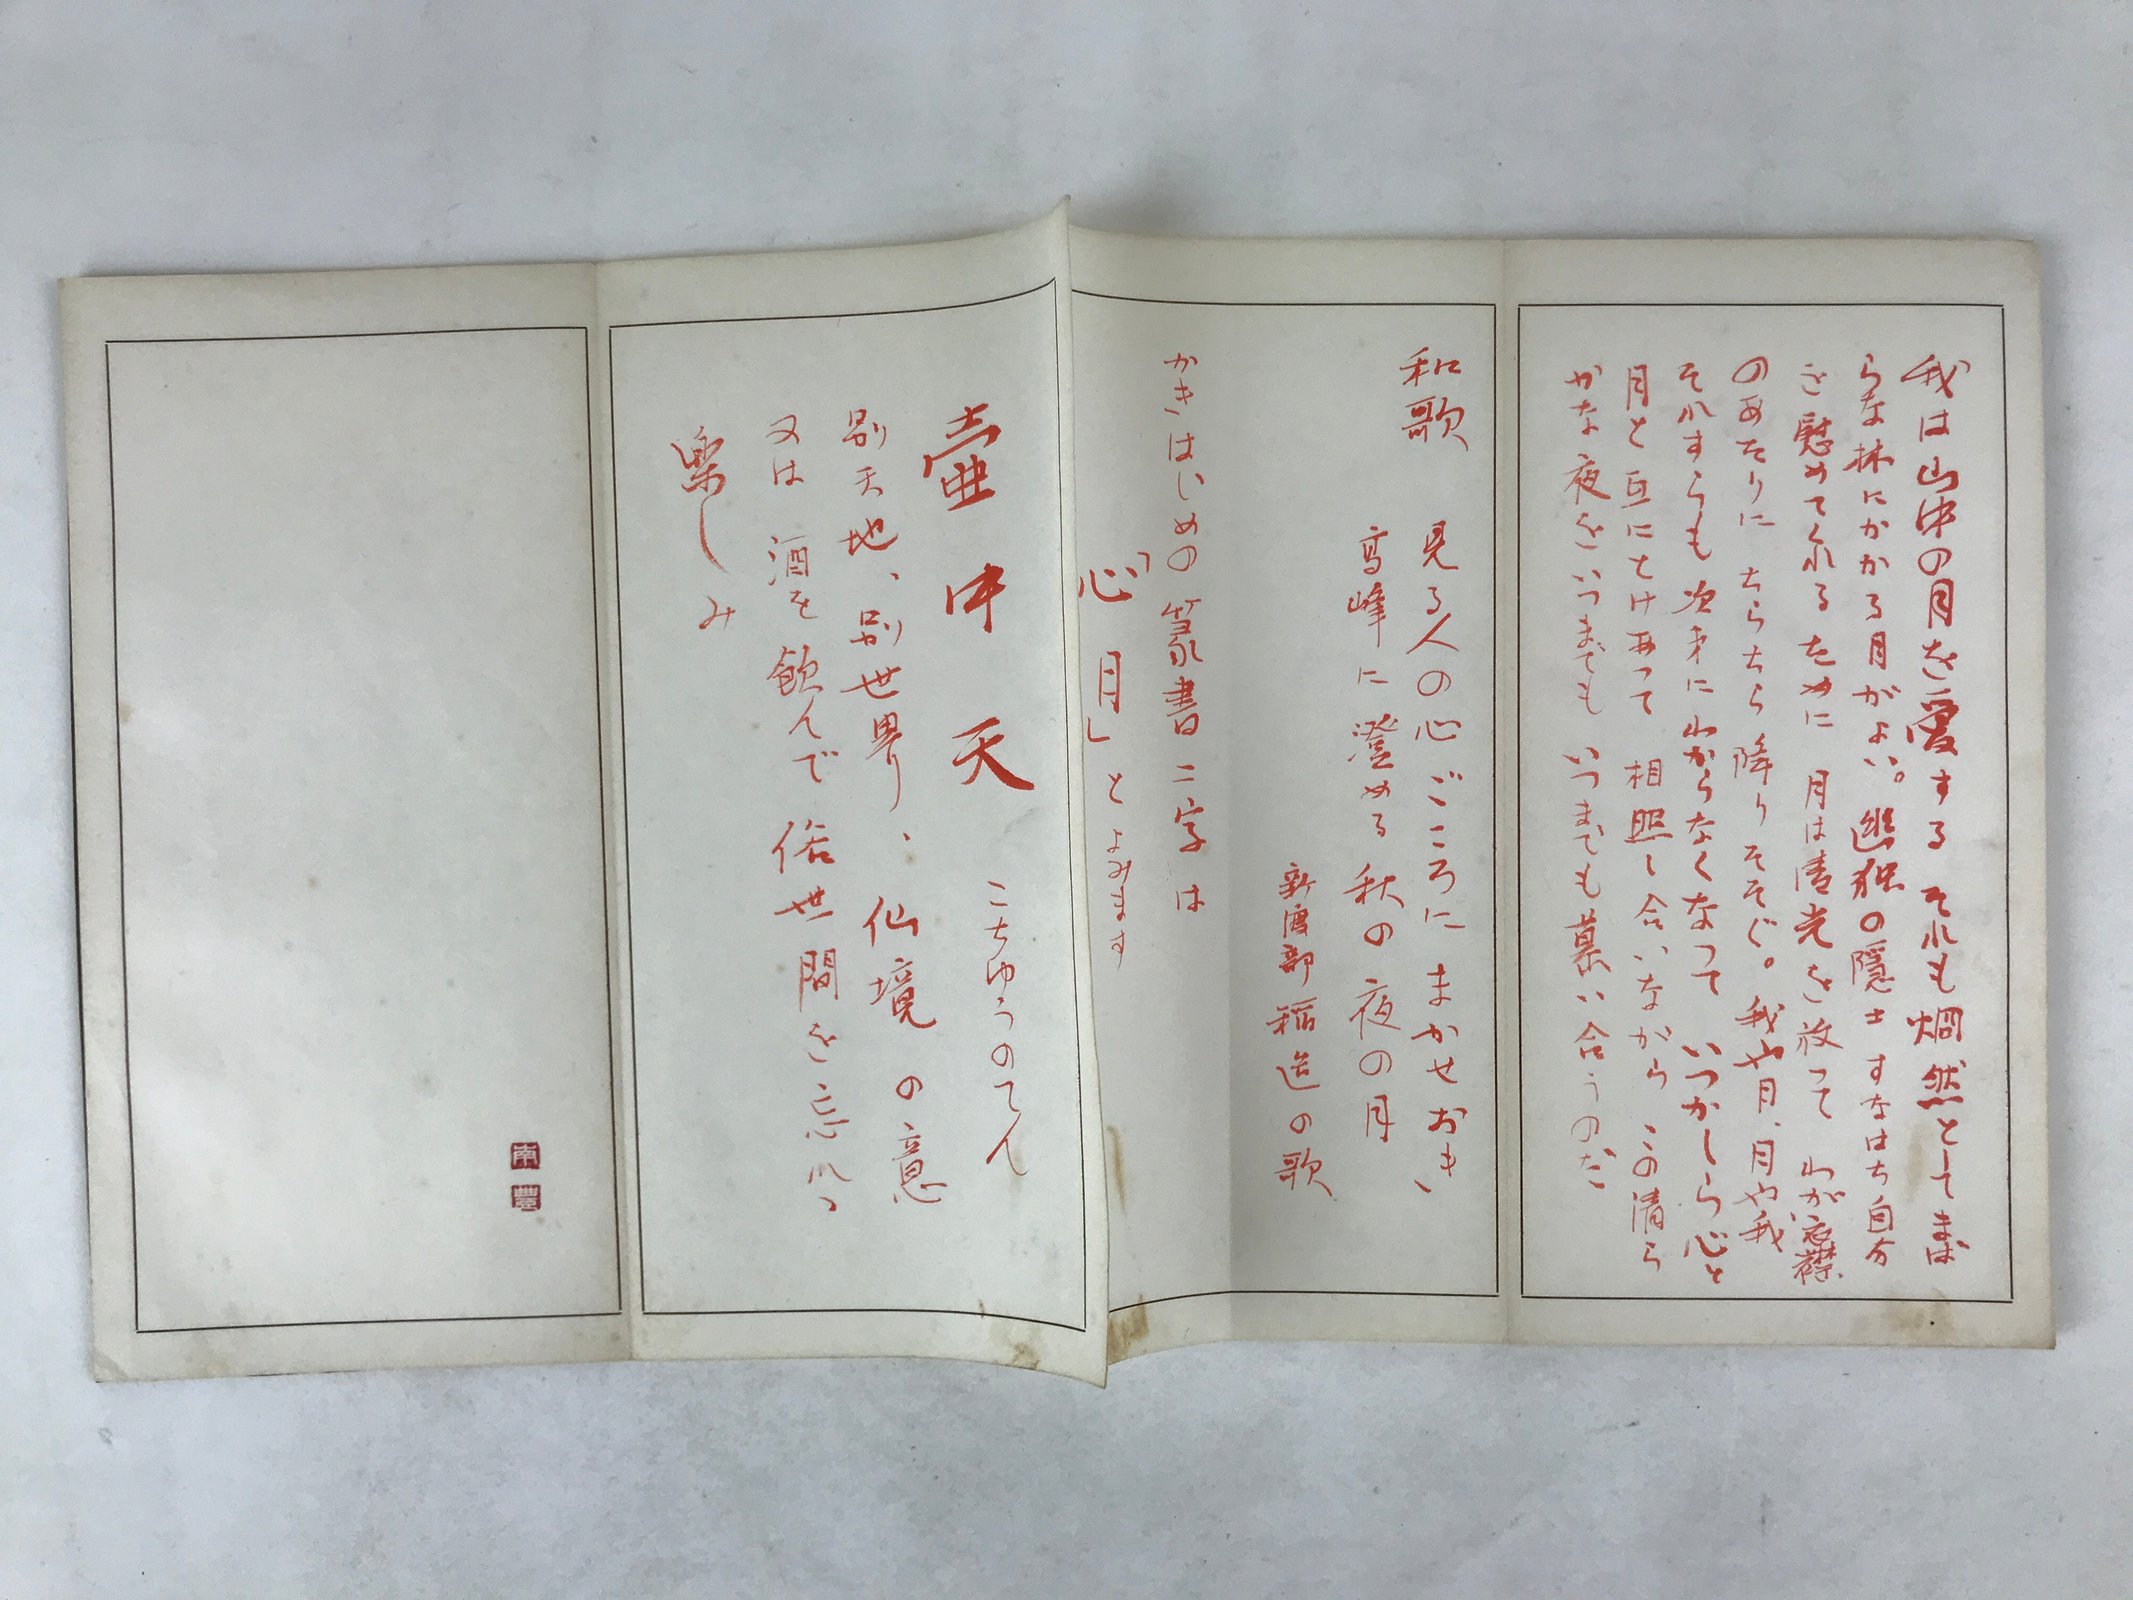 我は山中の月を愛する それも烱然としてまば
らな林にかかる月がよい。幽独の隠士 すなはち自分
を慰めてくれるために 月は清光を放って わが衣襟
のあたりに ちらちら降りそそぐ。我や月、月や我
それすらも次第にわからなくなって いつかしら心と
月と互にとけあって 相照し合いながら この清ら
かな夜をいつまでも いつまでも慕い合うのだ
和歌 見る人の心ごころにまかせおき
高峰に澄める秋の夜の月
新渡部稲造の歌
かきはじめの篆書二字は
「心月」とよみます
壷中天 こちゆうのてん
別天地、別世界、仙境の意
又は 酒を飲んで俗世間を忘れる
楽しみ
南
豊